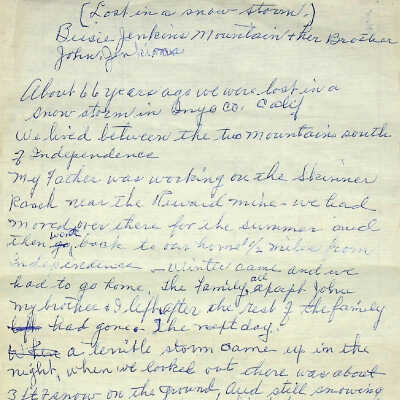 (Lost in a snow storm.)
Bessie Jenkins Mountain & her Brother
John Jenkins
About 66 years ago we were lost in a
snow storm in Inyo Co. Calif
We lived between the two mountains south
of Independence
My Father was working on the Skinner
Ranch near the Reward mine - we had
moved over there for the summer and
then went back to our home 1/2 miles from
Independence - Winter came and we
had to go home. The family all except John
my brother & I left after the rest of the family
had gone. The next day.
a terrible storm came up in the
night, when we looked out there was about
3 ft of snow on the ground, and still snowing